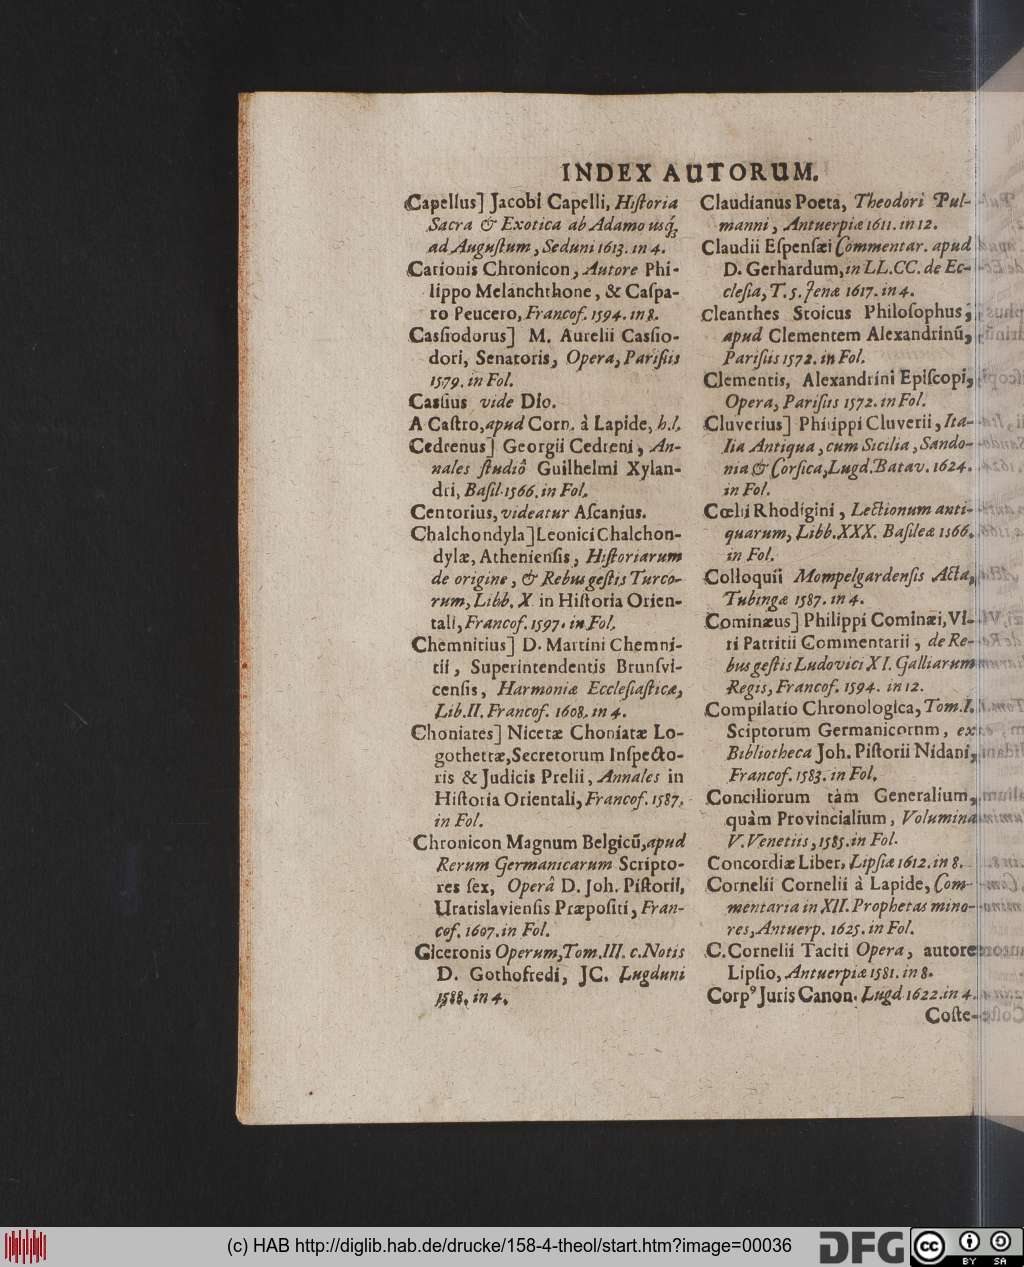 INDEX AUTORUM.
Capellus] Jacobi Capelli, Hiſtoria
Sacra & Exotica ab Adamo usq́;
ad Auguſtum, Seduni 1613. in 4.
Carionis Chronicon, Autore Phi-
lippo Melanchthone, & Caſpa-
ro Peucero, Francof. 1594. in 8.
Caſſiodorus] M. Aurelii Caſſio-
dori, Senatoris, Opera, Pariſiis
1579. in Fol.
Caſſius vide Dio.
A Caſtro, apud Corn. à Lapide, h. l.
Cedrenus] Georgii Cedreni, An-
nales ſtudiô Guilhelmi Xylan-
dri, Baſil. 1566. in Fol.
Centorius, videatur Aſcanius.
Chalchondyla] Leonici Chalchon-
dylæ, Athenienſis, Hiſtoriarum
de origine, & Rebus geſtis Turco-
rum, Libb. X. in Hiſtoria Orien-
tali, Francof. 1597. in Fol.
Chemnitius] D. Martini Chemni-
tii, Superintendentis Brunſvi-
cenſis, Harmoniæ Eccleſiaſticæ,
Lib. II. Francof. 1608. in 4.
Choniates] Nicetæ Choniatæ Lo-
gothettæ, Secretorum Inſpecto-
ris & Judicis Prelii, Annales in
Hiſtoria Orientali, Francof. 1587.
in Fol.
Chronicon Magnum Belgicũ, apud
Rerum Germanicarum Scripto-
res ſex, Operâ D. Joh. Piſtorii,
Uratislavienſis Præpoſiti, Fran-
cof. 1607. in Fol.
Ciceronis Operum, Tom. III. c. Notis
D. Gothofredi, JC. Lugduni
1588. in 4.
Claudianus Poeta, Theodori Pul-
manni, Antuerpiæ 1611. in 12.
Claudii Eſpenſæi Commentar. apud
D. Gerhardum, in LL. CC. de Ec-
cleſia, T. 5. Jenæ 1617. in 4.
Cleanthes Stoicus Philoſophus,
apud Clementem Alexandrinũ,
Pariſiis 1572. in Fol.
Clementis, Alexandrini Epiſcopi,
Opera, Pariſiis 1572. in Fol.
Cluverius] Philippi Cluverii, Ita-
lia Antiqua, cum Sicilia, Sando-
nia & Corſica, Lugd. Batav. 1624.
in Fol.
Cœlii Rhodigini, Lectionum anti-
quarum, Libb. XXX. Baſileæ 1566.
in Fol.
Colloquii Mompelgardenſis Acta,
Tubingæ 1587. in 4.
Cominæus] Philippi Cominæi, Vi-
ri Patritii Commentarii, de Re-
bus geſtis Ludovici XI. Galliarum
Regis, Francof. 1594. in 12.
Compilatio Chronologica, Tom. I.
Sciptorum Germanicornm, ex
Bibliotheca Joh. Piſtorii Nidani,
Francof. 1583. in Fol.
Conciliorum tàm Generalium,
quàm Provincialium, Volumina
V. Venetiis, 1585. in Fol.
Concordiæ Liber, Lipſiæ 1612. in 8.
Cornelii Cornelii à Lapide, Com-
mentaria in XII. Prophetas mino-
res, Antuerp. 1625. in Fol.
C. Cornelii Taciti Opera, autore
Lipſio, Antuerpiæ 1581. in 8.
Corpꝰ Juris Canon. Lugd 1622. in 4.
Coſte-
(c) HAB http://diglib.hab.de/drucke/158-4-theol/start.htm?image=00036
DFG
cc BY SA